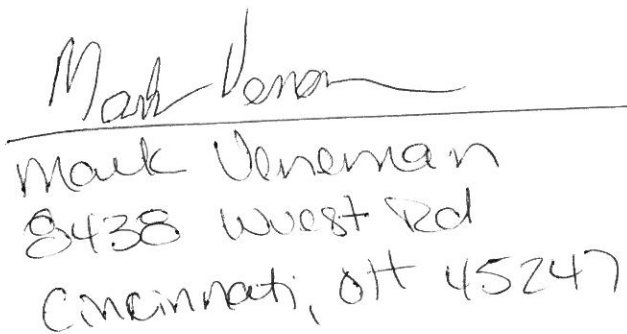 Mark Venem
Mark Veneman
8438 Wuest Rd
Cincinnati, OH 45247